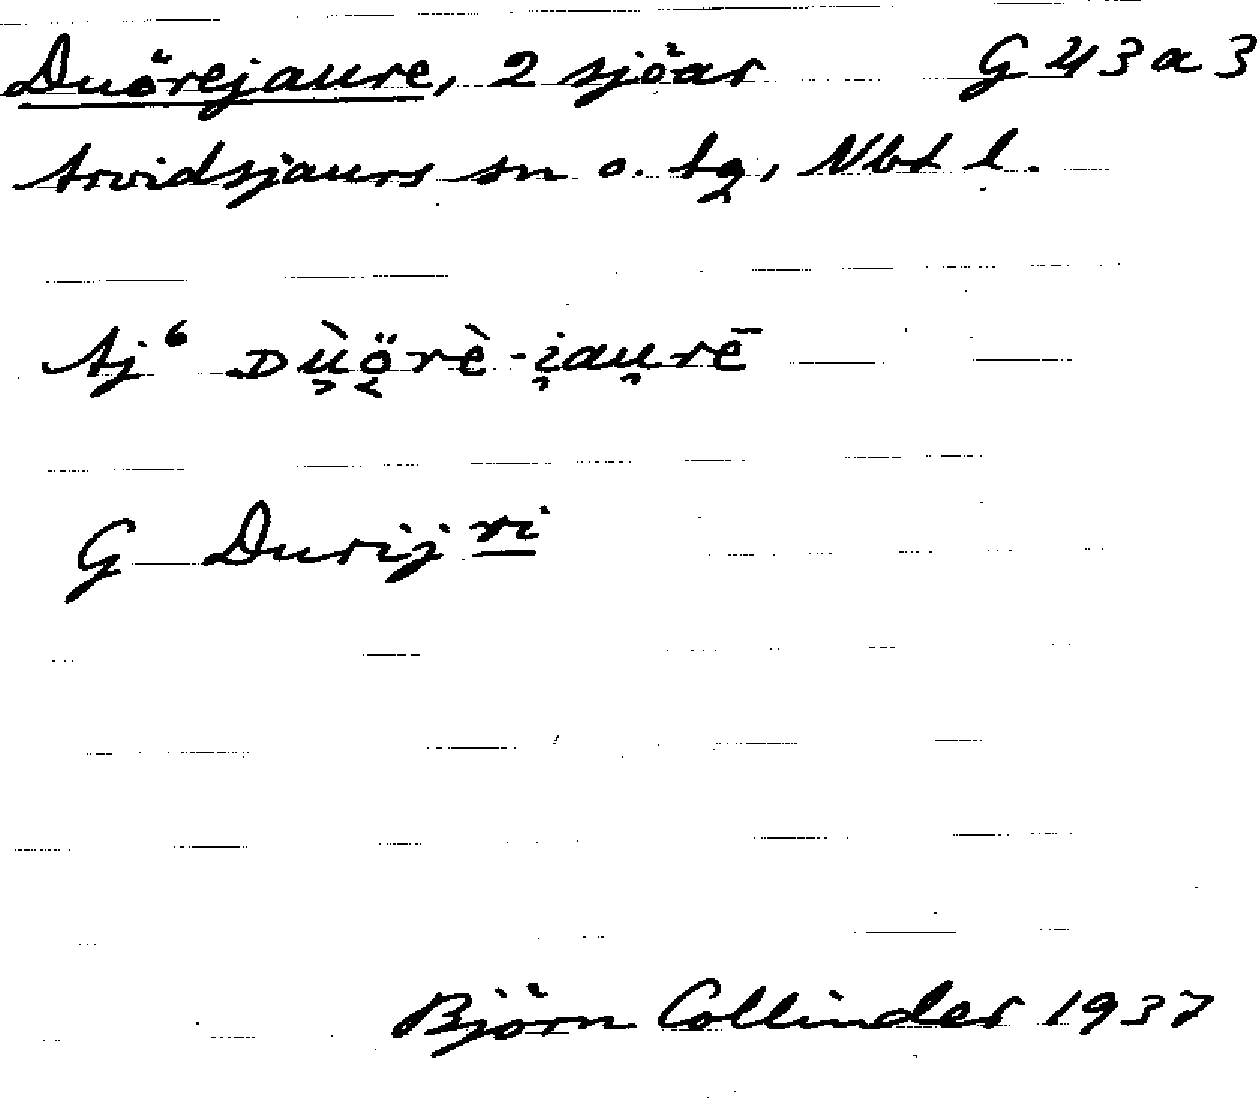 Duörejaure, 2 sjöar G 43 a 3
Arvidsjaurs sn o. tg, Nbt l.
Aj⁶ ᴅù̟ö̜rè-i̯au̯rē
G Durij ri
Björn Collinder 1937